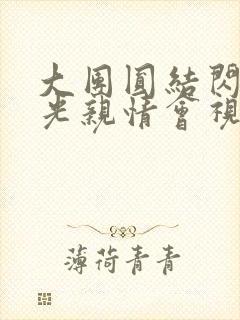 大團圓結閃
光親情會視
薄荷青青